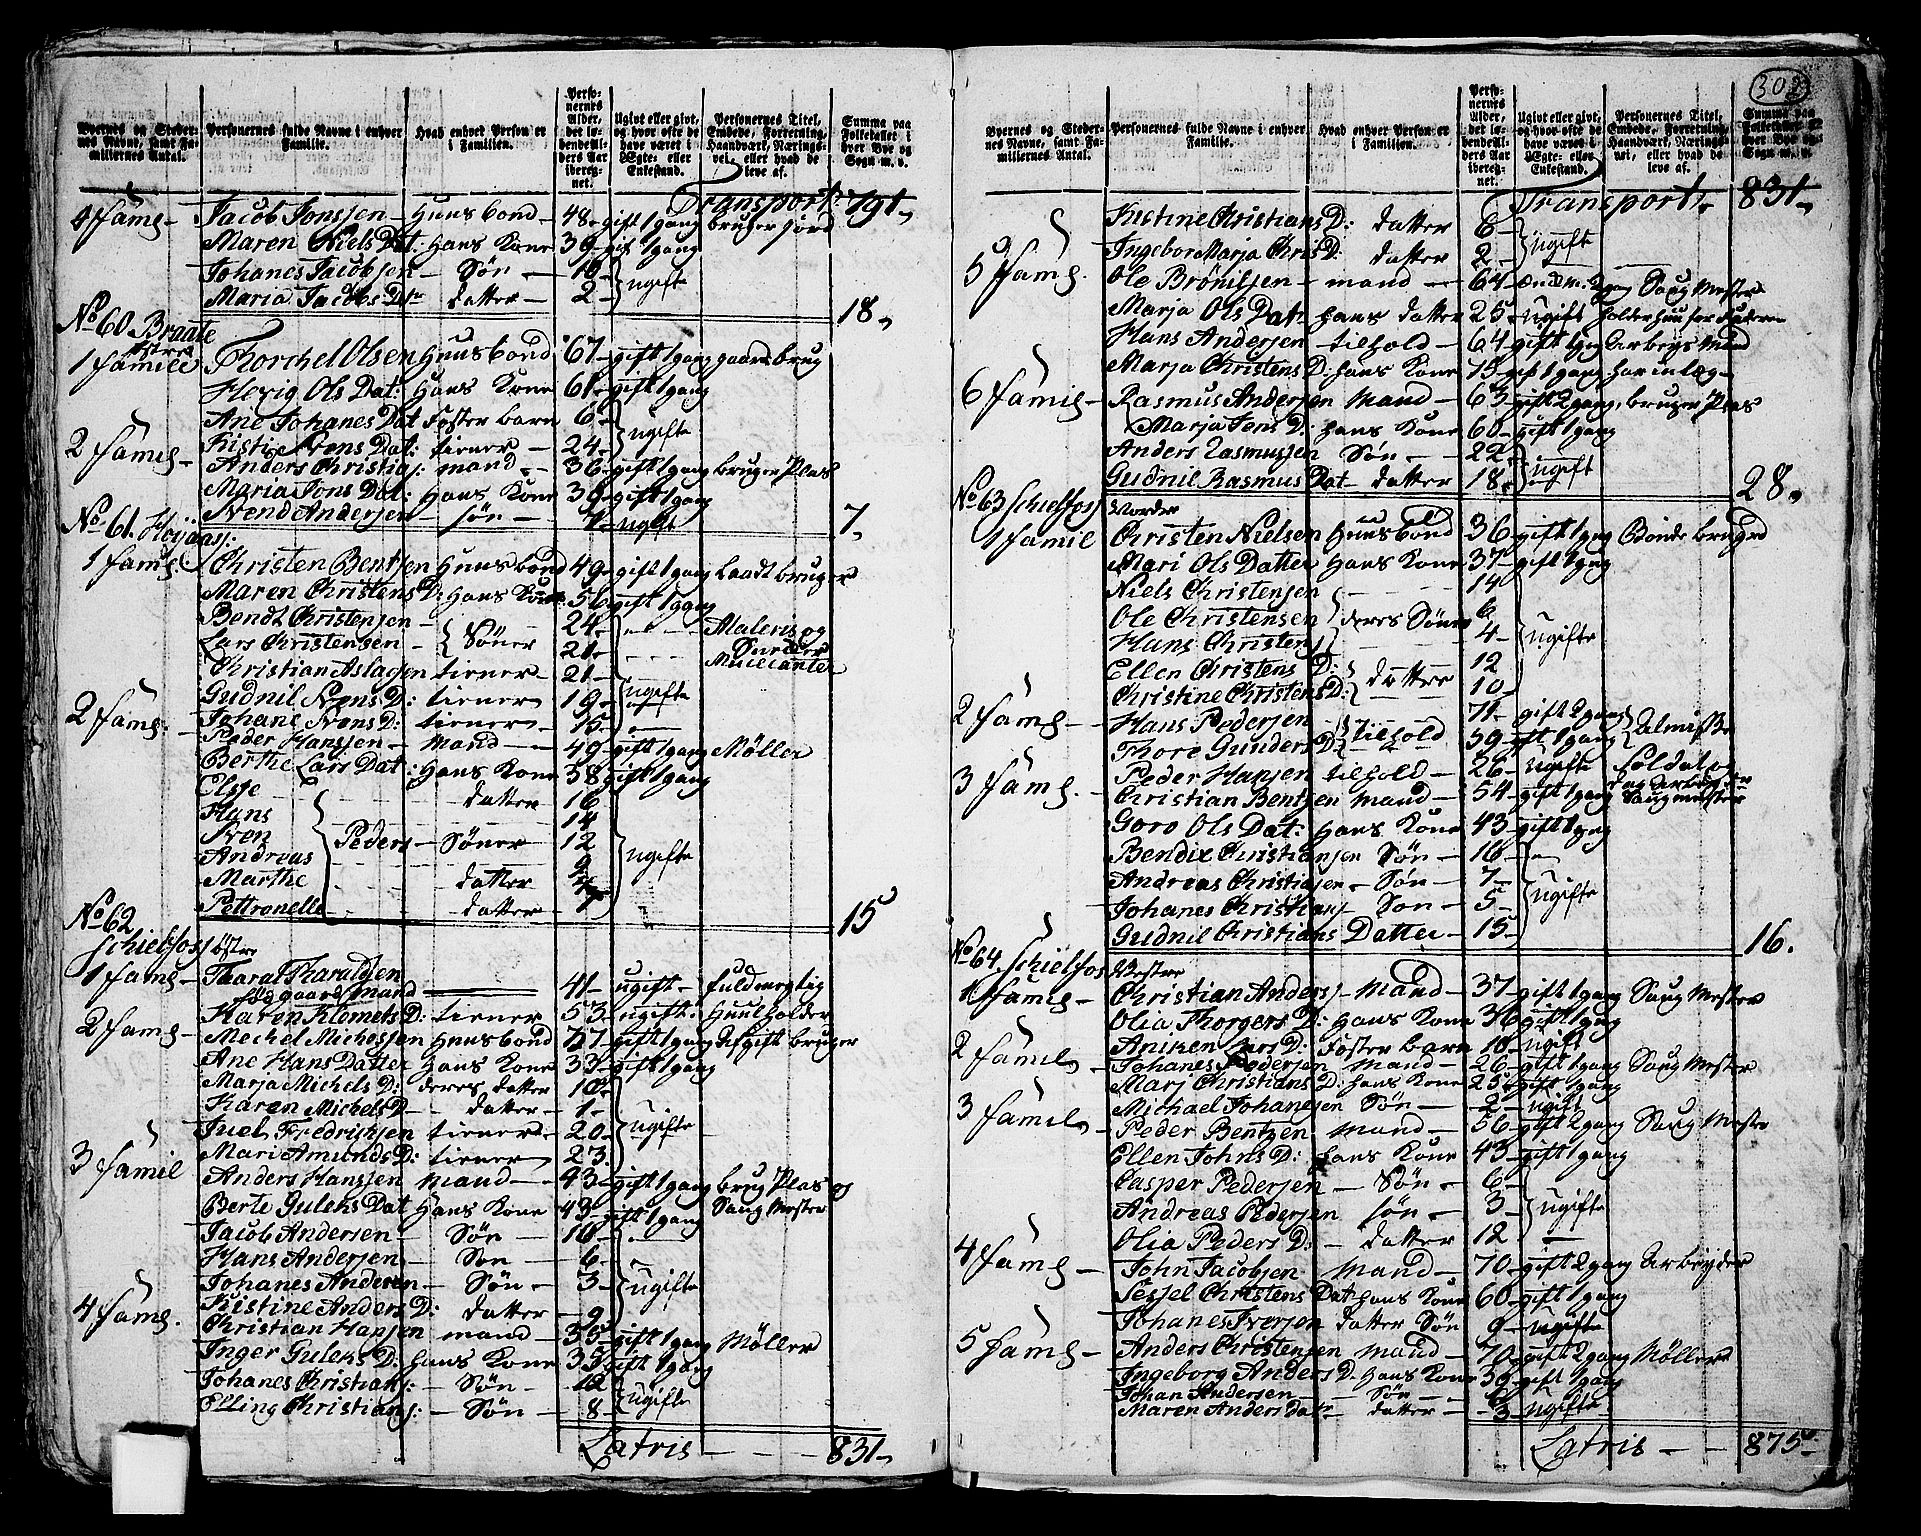 302
Byernes og Stedernes Navne, samt Familiernes Antal.
Personernes fulde Navne i enhver Familie.
Hvad enhver Person er i Familien.
Personernes Alder, det løbende Alders Aar iberegnet.
Ugivt eller givt, og hvor ofte de have været i Ægte- eller Enkestand.
Personernes Titel, Embede, Forretning, Haandværk, Næringsvei, eller hvad de leve af.
Summa paa Folketallet i hver Bye og Sogn m. v.
Transport 791
4 famℓ Jacob Jonssen Huusbond 48 gift 1 gang bruger jord
Maren Niels Dat: Hans Kone 39 gift 1 gang
Johanes Jacobsen Søn 10
Maria Jacobs Datr datter 2 ugifte
18
No 60 Braate østre
1 familie Thorchel Olsen Huusbond 67 gift 1 gang gaard brug
Hervig Ols Dat: Hans Kone 61 gift 1 gang
Ane Johanes Dat Foster barn 6
Kisti Svens Dat: tiener 24 ugifte
2 famiℓ Anders Christiaj: mand 36 gift 1 gang bruger Plas
Maria Jons Dat: Hans Kone 39 gift 1 gang
Svend Andersen søn 4 ugift
7
No 61. Hoijaas
1 famℓ Christen Bentsen Huusbond 49 gift 1 gang Laadt bruger
Maren Christens D: Hans Kone 56 gift 1 gang
Bendt Christensen 24
Lars Christensen Søner 21 Maleris og Snider Musicanter
Christian Aslagsen tiener 21
Gudnil Svens D: tiener 19 ugifte
Johane Svens D: tiener 15
2 famℓ Peder Hanssen Mand 49 gift 1 gang Møller
Berthe Lars Dat: Hans Kone 38 gift 1 gang
Elsje datter 16
Hans 14
Sven Peders Søner 12
Andreas 9 ugifte
Marthe datter 4
Pettronelle datter 1
15
No 62 Schielfoss østre
1 famℓ Tharal Tharaldsen
Sød gaards mand 41 ugift fuldmegtig
Karen Klomets D: tiener 53 ugift Huusholder
2 famℓ Mechel Michelsen Huusbond 77 gift 1 gang Afgift bruger
Ane Hans Datter Hans Kone 33 gift 1 gang
Marja Michels D: deres datter 10
Karen Michels D datter 1
Juel Fredrichsen tiener 20 ugifte
Mari Amunds D: tiener 23
3 famil Anders Hanssen Mand 43 gift 1 gang brug Plas og
Berte Guleks Dat Hans Kone 43 gift 1 gang Saug Mester
Jacob Andersen Søn 10
Hans Andersen Søn 6
Johanes Andersen Søn 3 ugifte
Kistine Anders D: datter 9
4 famℓ Christian Hansen mand 35 gift 1 gang Møller
Inger Guleks D: hans Kone 35 gift 1 gang
Johanes Christians: Søn 12
Elling Christians: Søn 8 ugifte
Latris 831
Byernes og Stedernes Navne, samt Familiernes Antal.
Personernes fulde Navne i enhver Familie.
Hvad enhver Person er i Familien.
Personernes Alder, det løbende Alders Aar iberegnet.
Ugivt eller givt, og hvor ofte de have været i Ægte- eller Enkestand.
Personernes Titel, Embede, Forretning, Haandværk, Næringsvei, eller hvad de leve af.
Summa paa Folketallet i hver Bye og Sogn m. v.
Transport 831
Kistine Christians D: datter 6
Ingebor Marja Chris D: datter 2 ugift
5 famℓ Ole Brønilsen mand 64 Saug Mester
Marja Ols Datr hans datter 25 ugift holder huus for faderen
Hans Andersen tilhold 64 gift 1 gang arbeys mand
Marja Christens D: hans Kone 75 gift 1 gang har inlæg
6 famiℓ Rasmus Andersen Mand 63 gift 2 gang, bruger Plas
Marja Jens D: hans Kone 60 gift 1 gang
Anders Rasmussen Søn 22
Gudnil Rasmus Dat datter 18 ugift
28
No 63 Schielfos Nordre
1 famil Christen Nielsen Huusbond 36 gift 1 gang Bonde brugrd
Mari Ols Datter Hans Kone 37 gift 1 gang
Niels Christensen 14
Ole Christensen deres Sønr 6
Hans Christensj 4 ugifte
Ellen Christens D: 12
Christine Christens D: datter 10
2 famℓ Hans Pedersen 71 gift 2 gang
Thore Gunders D: tilhold 59 gift 1 gang Almisse
3 famℓ Peder Hansen tilhold 26 ugifte Soldat og
Christian Bentsen Mand 54 gift 1 gang Saug mester
Goro Ols Dat: Hans Kone 43 gift 1 gang
Bendix Christiansen Søn 10
Andreas Christiansen Søn 7
Johanes Christiansj Søn 5 ugifte
Gudnil Christians Datter 15
16.
No 64 Schielfos Vestre
1 famℓ Christian Andersj Mand 37 gift 1 gang Saug Mester
Olia Thorgers D: Hans Kone 36 gift 1 gang
Aniken Lars D: Foster barn 10 ugift
2 famiℓ Johanes Pedersen Mand 26 gift 1 gang Saug Mester
Marj Christians D: hans Kone 25 gift 1 gang
Michael Johanesen Søn 2 ugift
3 famiℓ Peder Bentzen Mand 56 gift 2 gang Saug Mester
Ellen Johns D: hans Kone 43 gift 1 gang
Casper Pedersen Søn 6
Andreas Pedersen søn 3 ugifte
Olia Peders D: datter 12
4 famℓ John Jacobsen Mand 70 gift 2 gang Arbeyder
Sessel Christens Dat hans Kone 60 gift 1 gang
Johanes Iversen datter Søn 9 ugifte
5 famℓ Anders Christensen Mand 70 gift 2 gang Møller
Ingeborg Anders D: Hans Kone 36 gift 1 gang
Johan Andersen Søn 6
Maren Anders Datr datter 3 ugifte
Latris 875